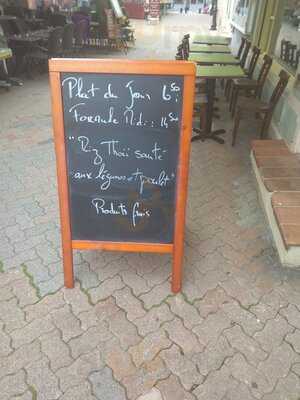 Plat du Jour : 6.50
Formule Midi : 14.50
"Riz Thaï sauté
aux légumes et poulet"
Produits frais